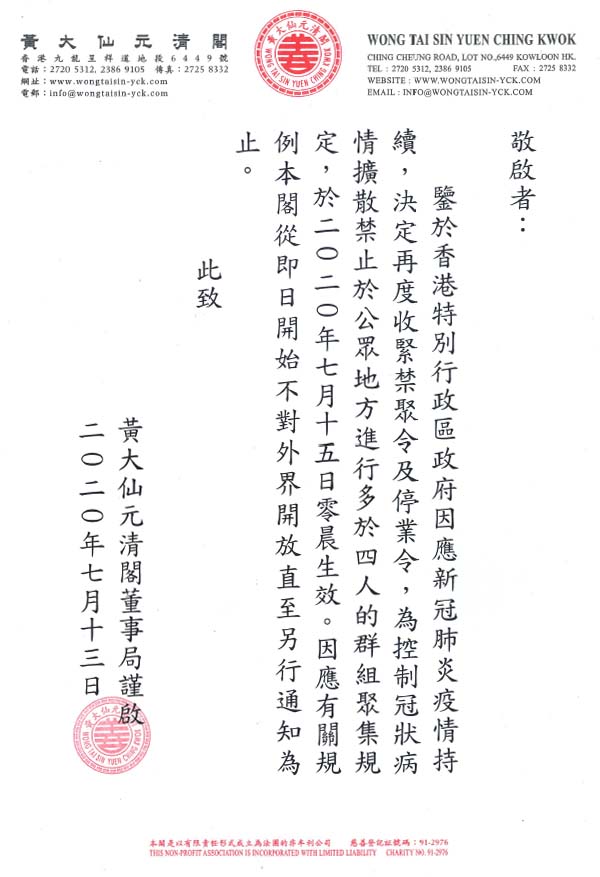 黃大仙元清閣
香港九龍呈祥道地段6449號
電話：2720 5312, 2386 9105 傳真：2725 8332
網址：www.wongtaisin-yck.com
電郵：info@wongtaisin-yck.com
黃大仙元清閣
善
WONG TAI SIN YUEN CHING KWOK
WONG TAI SIN YUEN CHING KWOK
CHING CHEUNG ROAD, LOT NO.,6449 KOWLOON HK.
TEL : 2720 5312, 2386 9105 FAX : 2725 8332
WEBSITE : WWW.WONGTAISIN-YCK.COM
EMAIL : INFO@WONGTAISIN-YCK.COM
敬啟者：
鑒於香港特別行政區政府因應新冠肺炎疫情持
續，決定再度收緊禁聚令及停業令，為控制冠狀病
情擴散禁止於公眾地方進行多於四人的群組聚集規
定，於二○二○年七月十五日零晨生效。因應有關規
例本閣從即日開始不對外界開放直至另行通知為
止。
此致
黃大仙元清閣董事局謹啟
二○二○年七月十三日
黃大仙元清閣
善
WONG TAI SIN YUEN CHING KWOK
本閣是以有限責任形式成立為法團的非牟利公司 慈善登記証號碼：91-2976
THIS NON-PROFIT ASSOCIATION IS INCORPORATED WITH LIMITED LIABILITY CHARITY NO. 91-2976